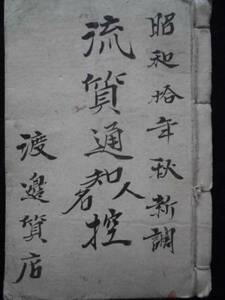 昭和拾年秋新調
流質通知人名控
渡邉質店